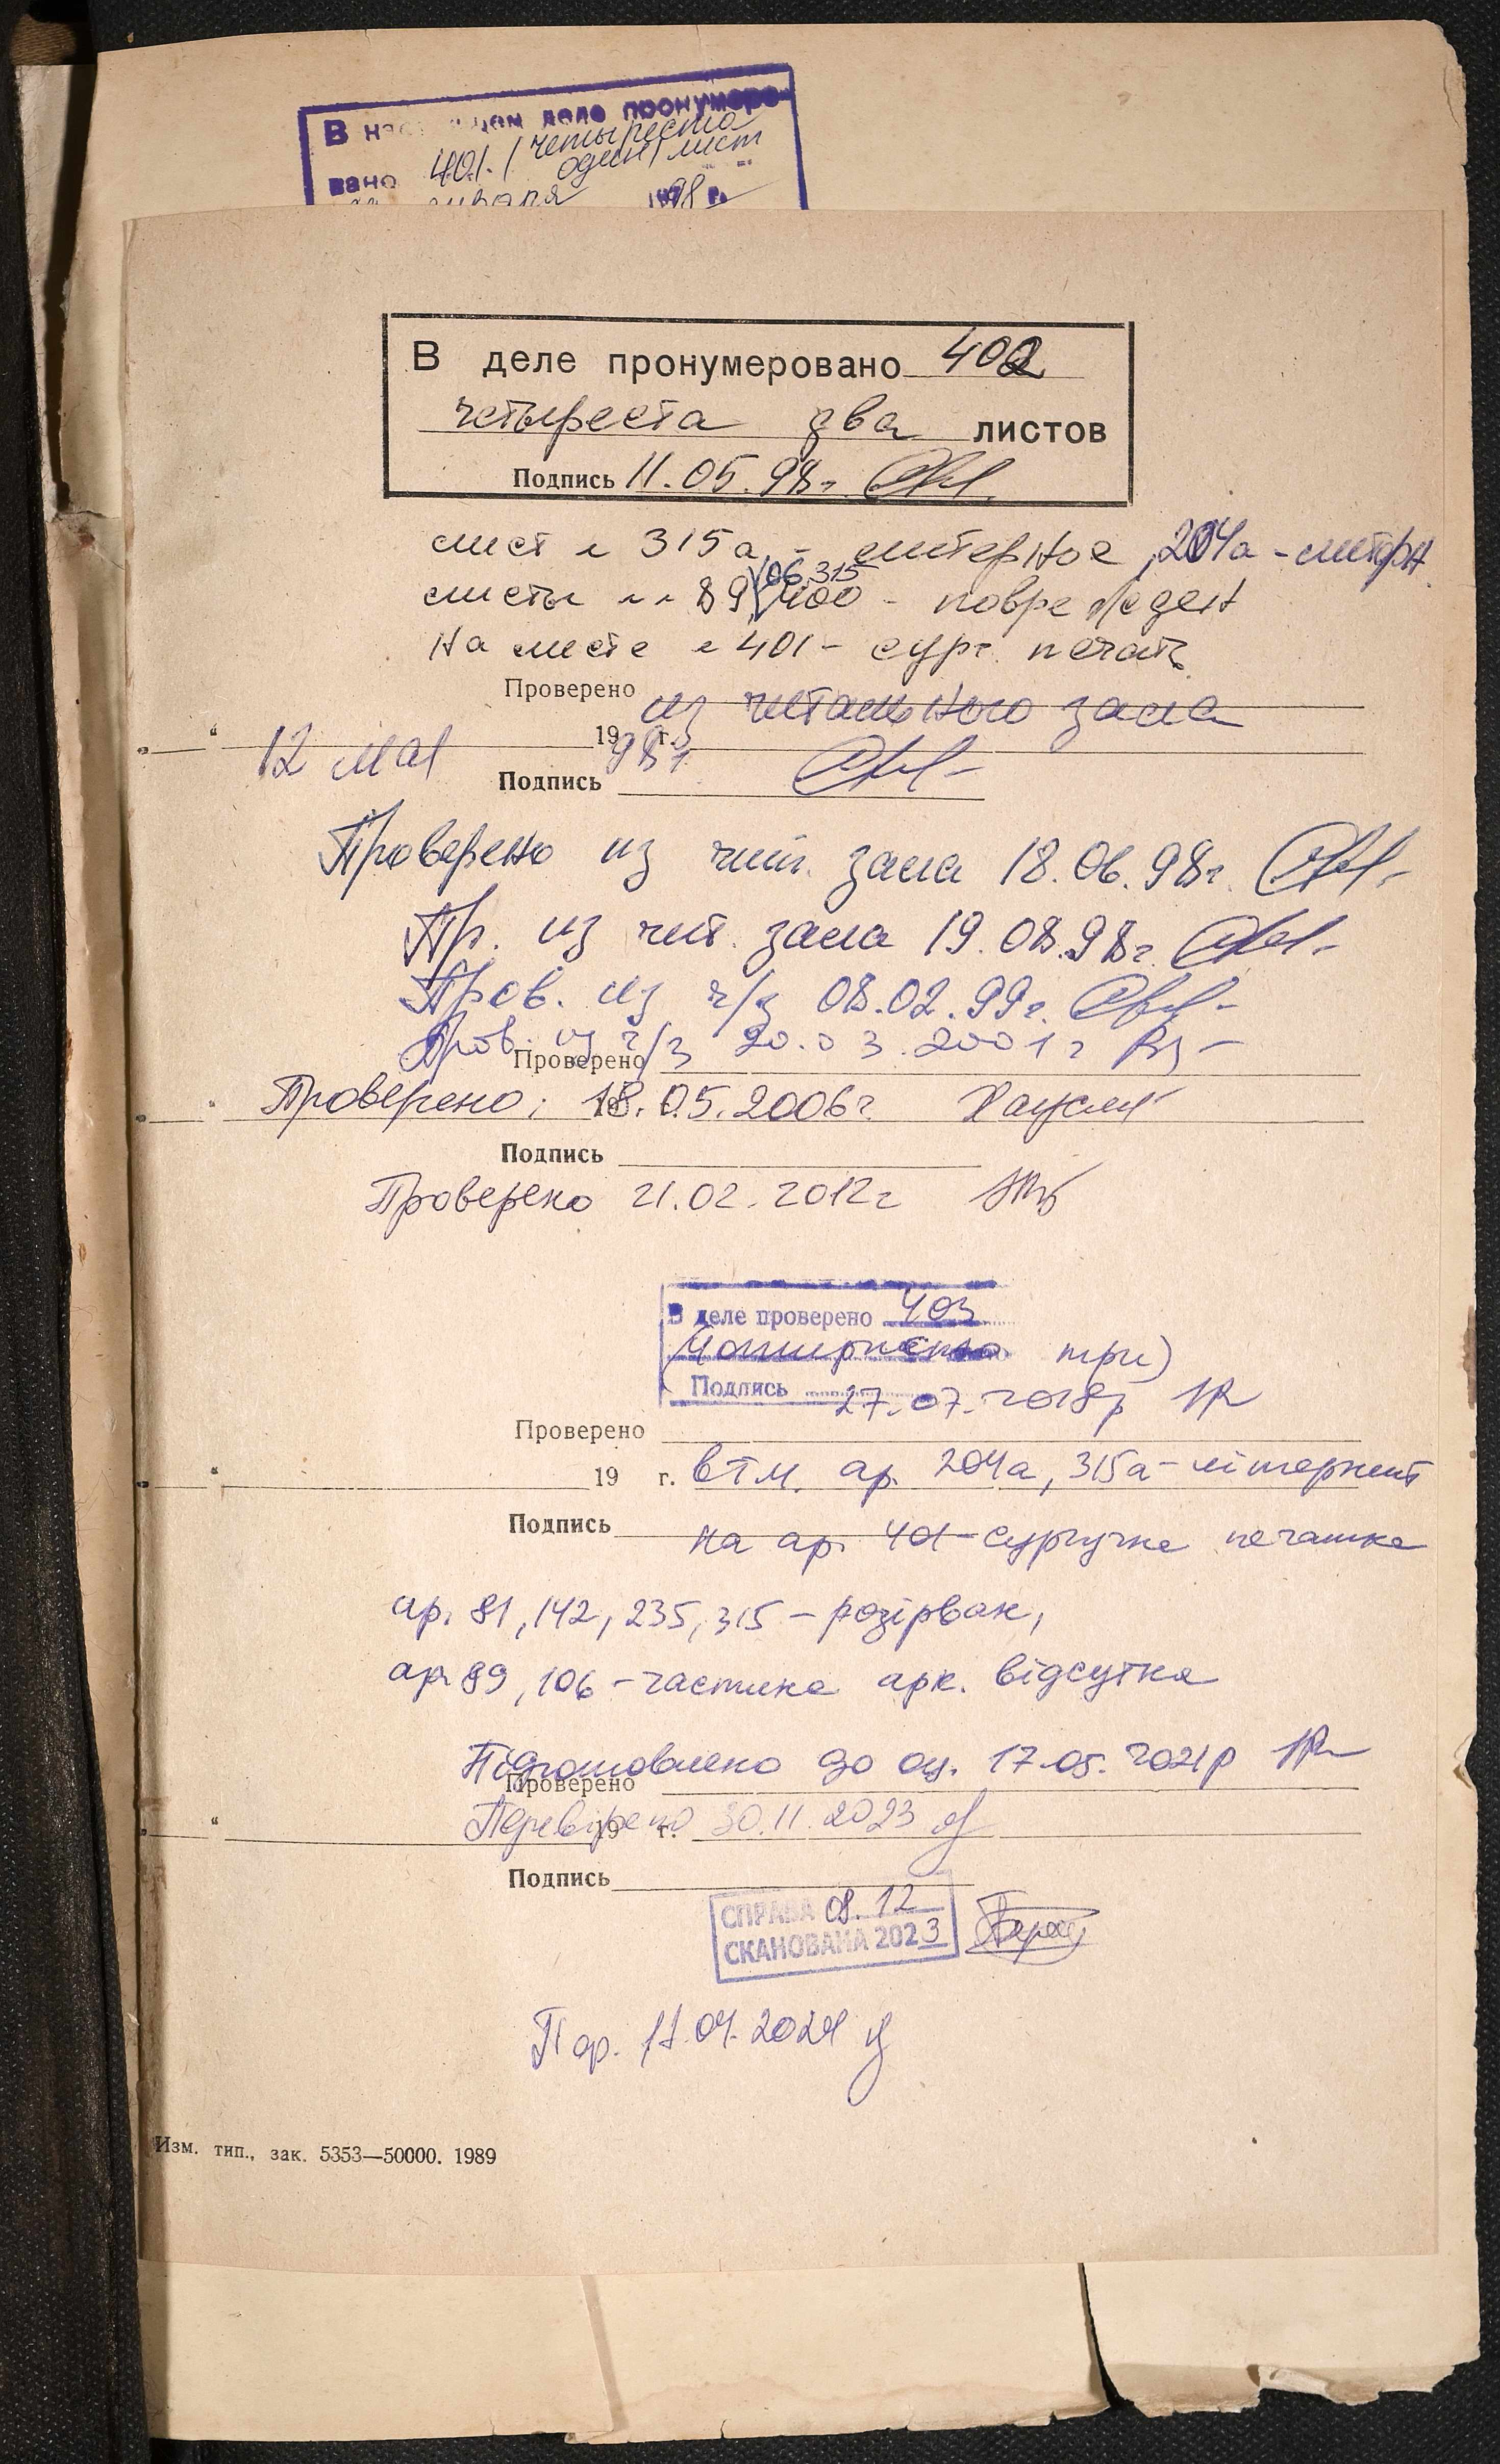 В настоящем деле пронумеро-
вано 401 / четыреста
один / лист
января 1998 г.
В деле пронумеровано 402
четыреста два листов
Подпись 11.05.98г.
лист № 315а - литерное, 204а - литерн.
листы №№ 89, 106, 315, 400 - поврежден
На листе № 401 - сург. печать
Проверено из читального зала
12 мая 1998 г.
Подпись
Проверено из чит. зала 18.06.98г.
Пр. из чит. зала 19.08.98г.
Пров. из ч/з 08.02.99г.
Пров. из ч/з 20.03.2001г
Проверено
Проверено: 18.05.2006г
Подпись
Проверено 21.02.2012г
В деле проверено 403
(чотириста три)
Подпись 27.07.2018р
Проверено
19 г. в т.ч. ар. 204а, 315а - літерний
Подпись На ар. 401 - сургучна печатка
ар. 81, 142, 235, 315 - розірван,
ар 89, 106 - частина арк. відсутня
Підготовлено до оц. 17.05.2021р
Проверено
Перевірено 30.11.2023
19 г.
Подпись
СПРАВА 08.12
СКАНОВАНА 2023
Пер. 11.04.2024
Изм. тип., зак. 5353—50000. 1989